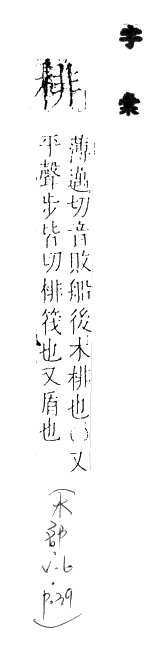 字彙
棑
薄邁切音敗船後木棑也○又
平聲步皆切棑筏也又盾也
(木部 v.6. p.39)